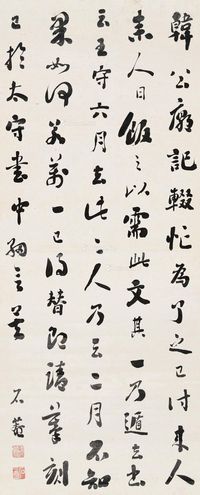 韓公廟記輟忙為了之已付来人
人日飯之以需此文其一乃遁去
云王守六月去此二人乃云二月不知
果如何若萬一已得替即請刻
已於太守書中細言矣 石菴